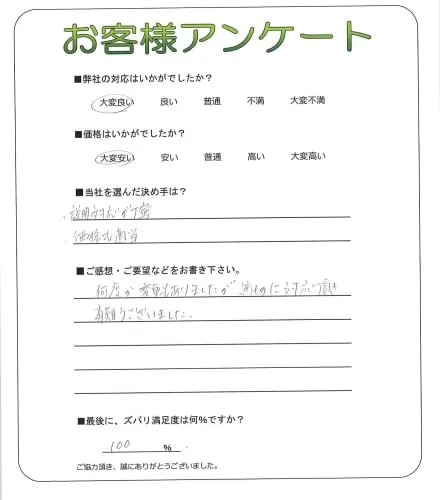 お客様アンケート
■弊社の対応はいかがでしたか？
大変良い 良い 普通 不満 大変不満
■価格はいかがでしたか？
大変安い 安い 普通 高い 大変高い
■当社を選んだ決め手は？
・説明対応が丁寧
・価格も適当
■ご感想・ご要望などをお書き下さい。
何度か変更もありましたが 対応頂き
有難うございました。
■最後に、ズバリ満足度は何%ですか？
100 %
ご協力頂き、誠にありがとうございました。